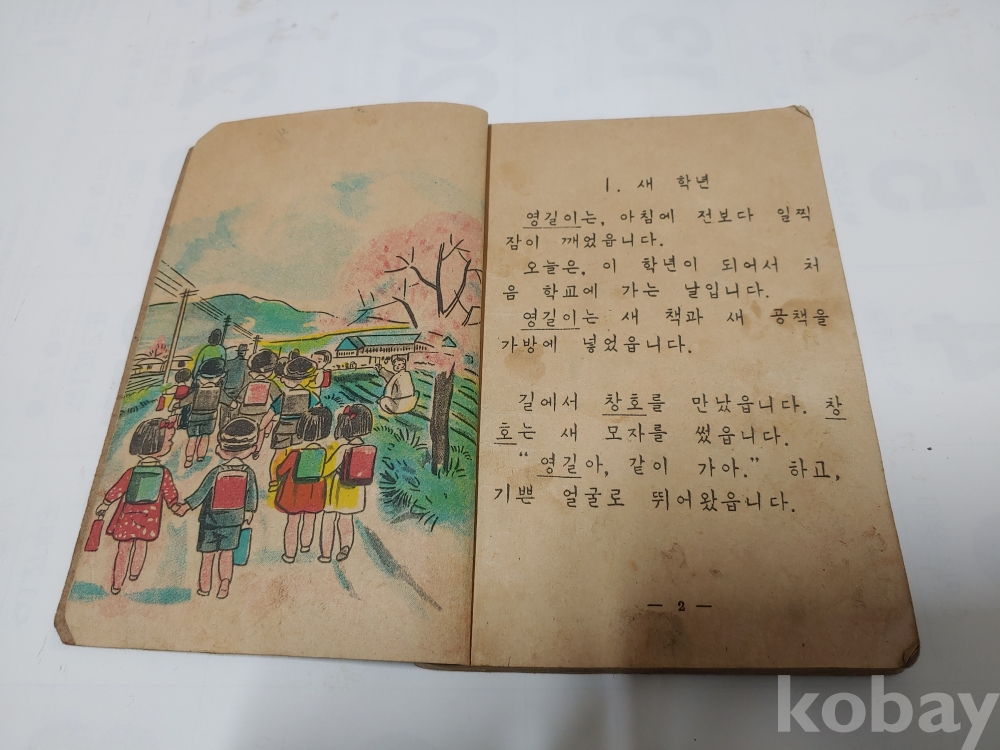 1. 새 학년
영길이는, 아침에 전보다 일찍
잠이 깨었읍니다.
오늘은, 이 학년이 되어서 처
음 학교에 가는 날입니다.
영길이는 새 책과 새 공책을
가방에 넣었읍니다.
길에서 창호를 만났읍니다. 창
호는 새 모자를 썼읍니다.
"영길아, 같이 가아." 하고,
기쁜 얼굴로 뛰어왔읍니다.
— 2 —
kobay